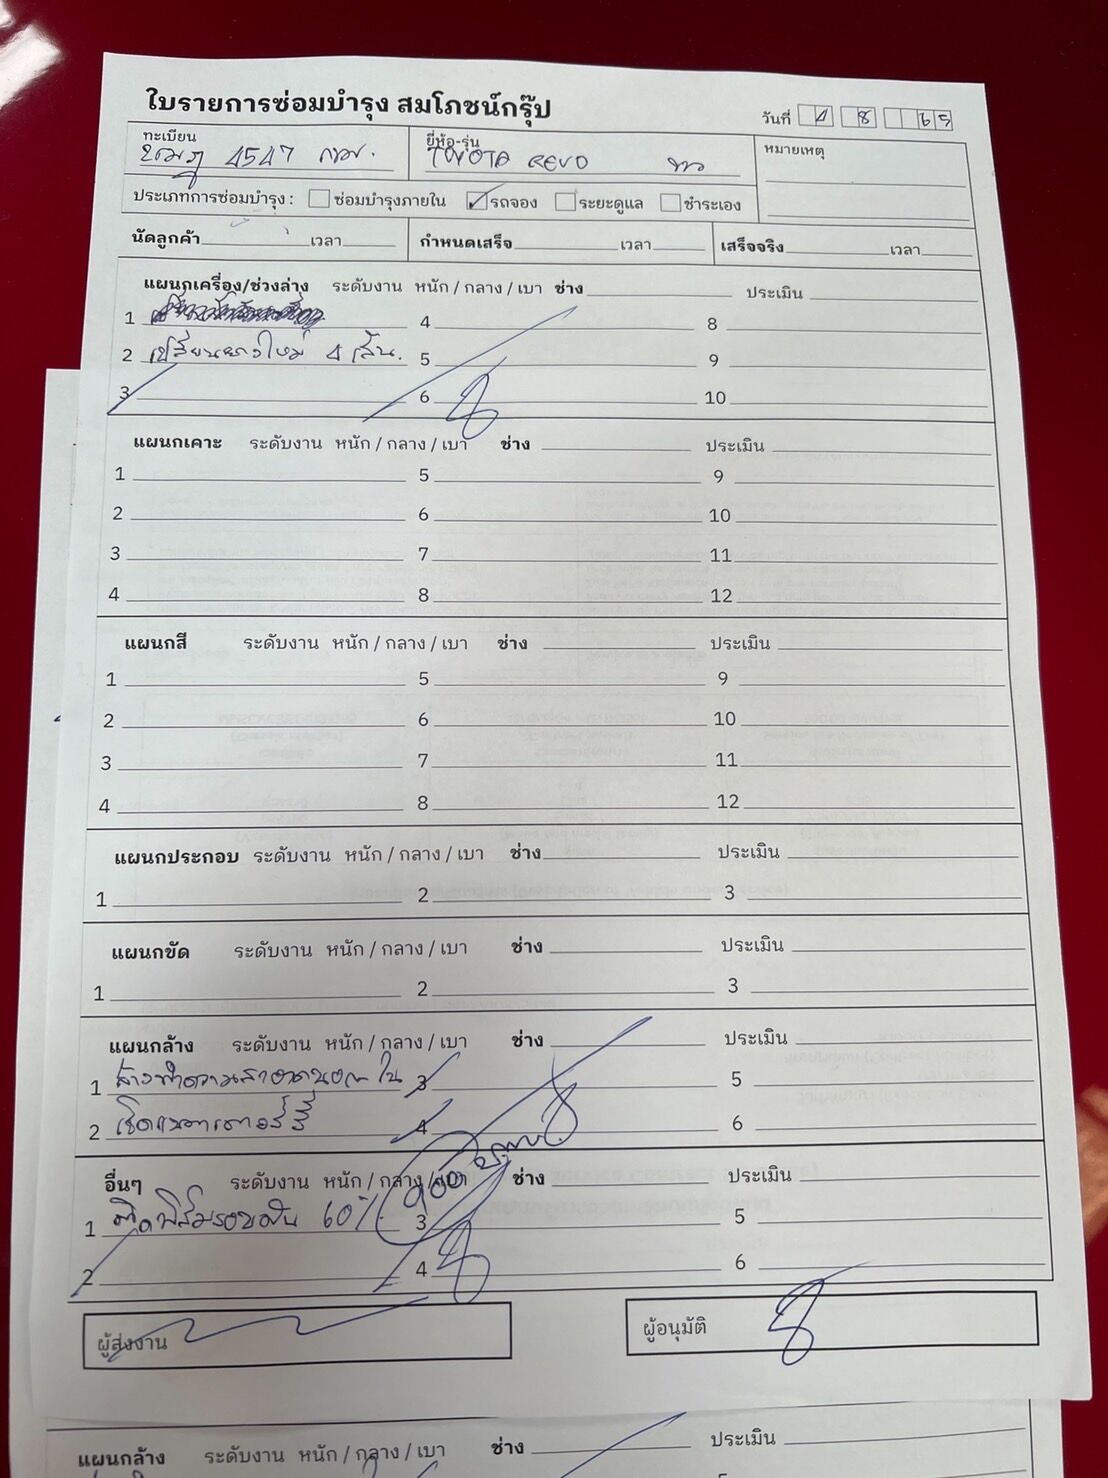 ใบรายการซ่อมบำรุง สมโภชน์กรุ๊ป
วันที่ 4 8 65
ทะเบียน 4547 กทม.
ยี่ห้อ-รุ่น TOYOTA REVO ขาว
หมายเหตุ
ประเภทการซ่อมบำรุง : ซ่อมบำรุงภายใน รถจอง ระยะดูแล ชำระเอง
นัดลูกค้า เวลา กำหนดเสร็จ เวลา เสร็จจริง เวลา
แผนกเครื่อง/ช่วงล่าง ระดับงาน หนัก / กลาง / เบา ช่าง ประเมิน
1 4 8
2 เปลี่ยนยางใหม่ 4 เส้น. 5 9
3 6 10
แผนกเคาะ ระดับงาน หนัก / กลาง / เบา ช่าง ประเมิน
1 5 9
2 6 10
3 7 11
4 8 12
แผนกสี ระดับงาน หนัก / กลาง / เบา ช่าง ประเมิน
1 5 9
2 6 10
3 7 11
4 8 12
แผนกประกอบ ระดับงาน หนัก / กลาง / เบา ช่าง ประเมิน
1 2 3
แผนกขัด ระดับงาน หนัก / กลาง / เบา ช่าง ประเมิน
1 2 3
แผนกล้าง ระดับงาน หนัก / กลาง / เบา ช่าง ประเมิน
1 ล้างทำความสะอาดนอก ใน 3 5
2 เช็คแบตเตอร์รี่ 4 6
อื่นๆ ระดับงาน หนัก / กลาง / เบา ช่าง ประเมิน
1 ติดฟิล์มรอบคัน 60% 3 5
2 4 6
ผู้ส่งงาน
ผู้อนุมัติ
แผนกล้าง ระดับงาน หนัก / กลาง / เบา ช่าง ประเมิน